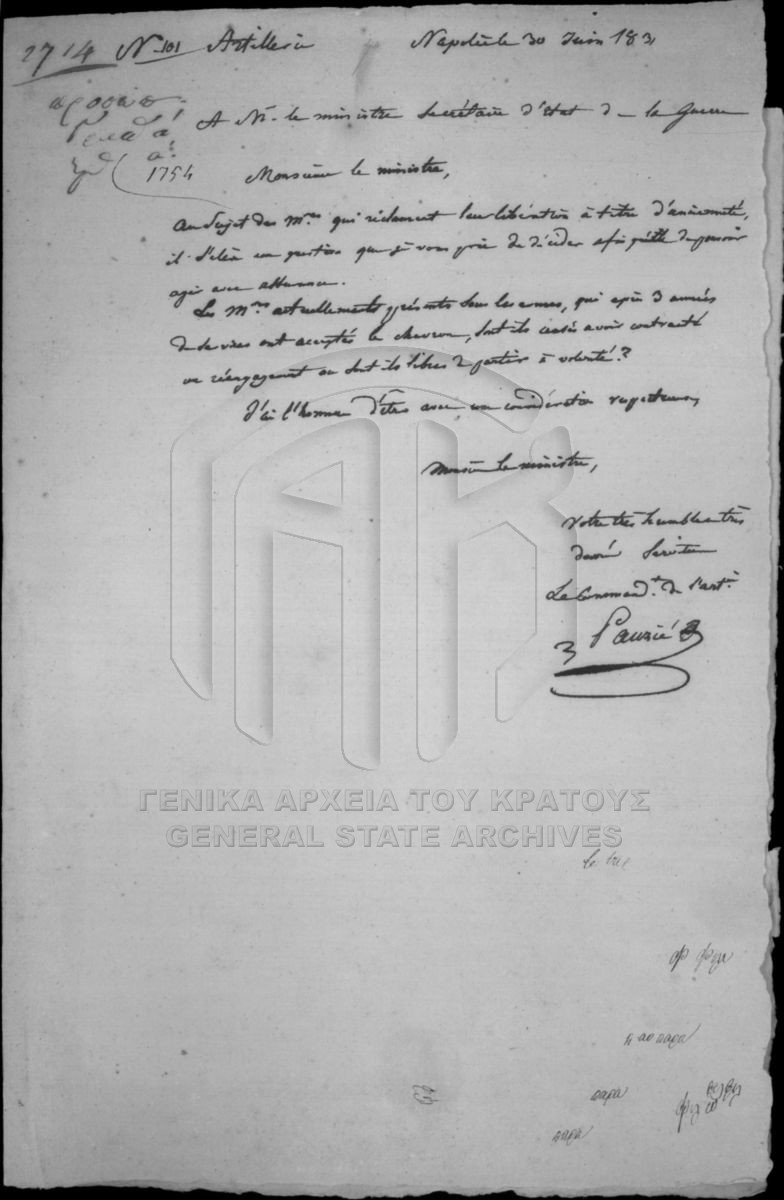 2714 N 101 Artillerie Napoli le 30 Juin 183
A Mr. le ministre Secrétaire d'état d la Guerre
1754 Monsieur le ministre,
au Sujet des Mres qui réclament leur libération à titre d'ancienneté,
il S'élève une question que je vous prie de décider afin de pouvoir
agir avec assurance.
Les Mres actuellements présents sous les armes, qui après 3 années
de Service ont acceptés le chevron, sont ils censés avoir contracté
un réengagement ou sont ils libres de partir à volonté?
J'ai l'honneur d'être avec une considération respectueuse,
Monsieur le ministre,
Votre très humble et très
dévoué Serviteur
Le Commandt. de l'artie
Pauzié
ΓΕΝΙΚΑ ΑΡΧΕΙΑ ΤΟΥ ΚΡΑΤΟΥΣ
GENERAL STATE ARCHIVES
παρα
παρα